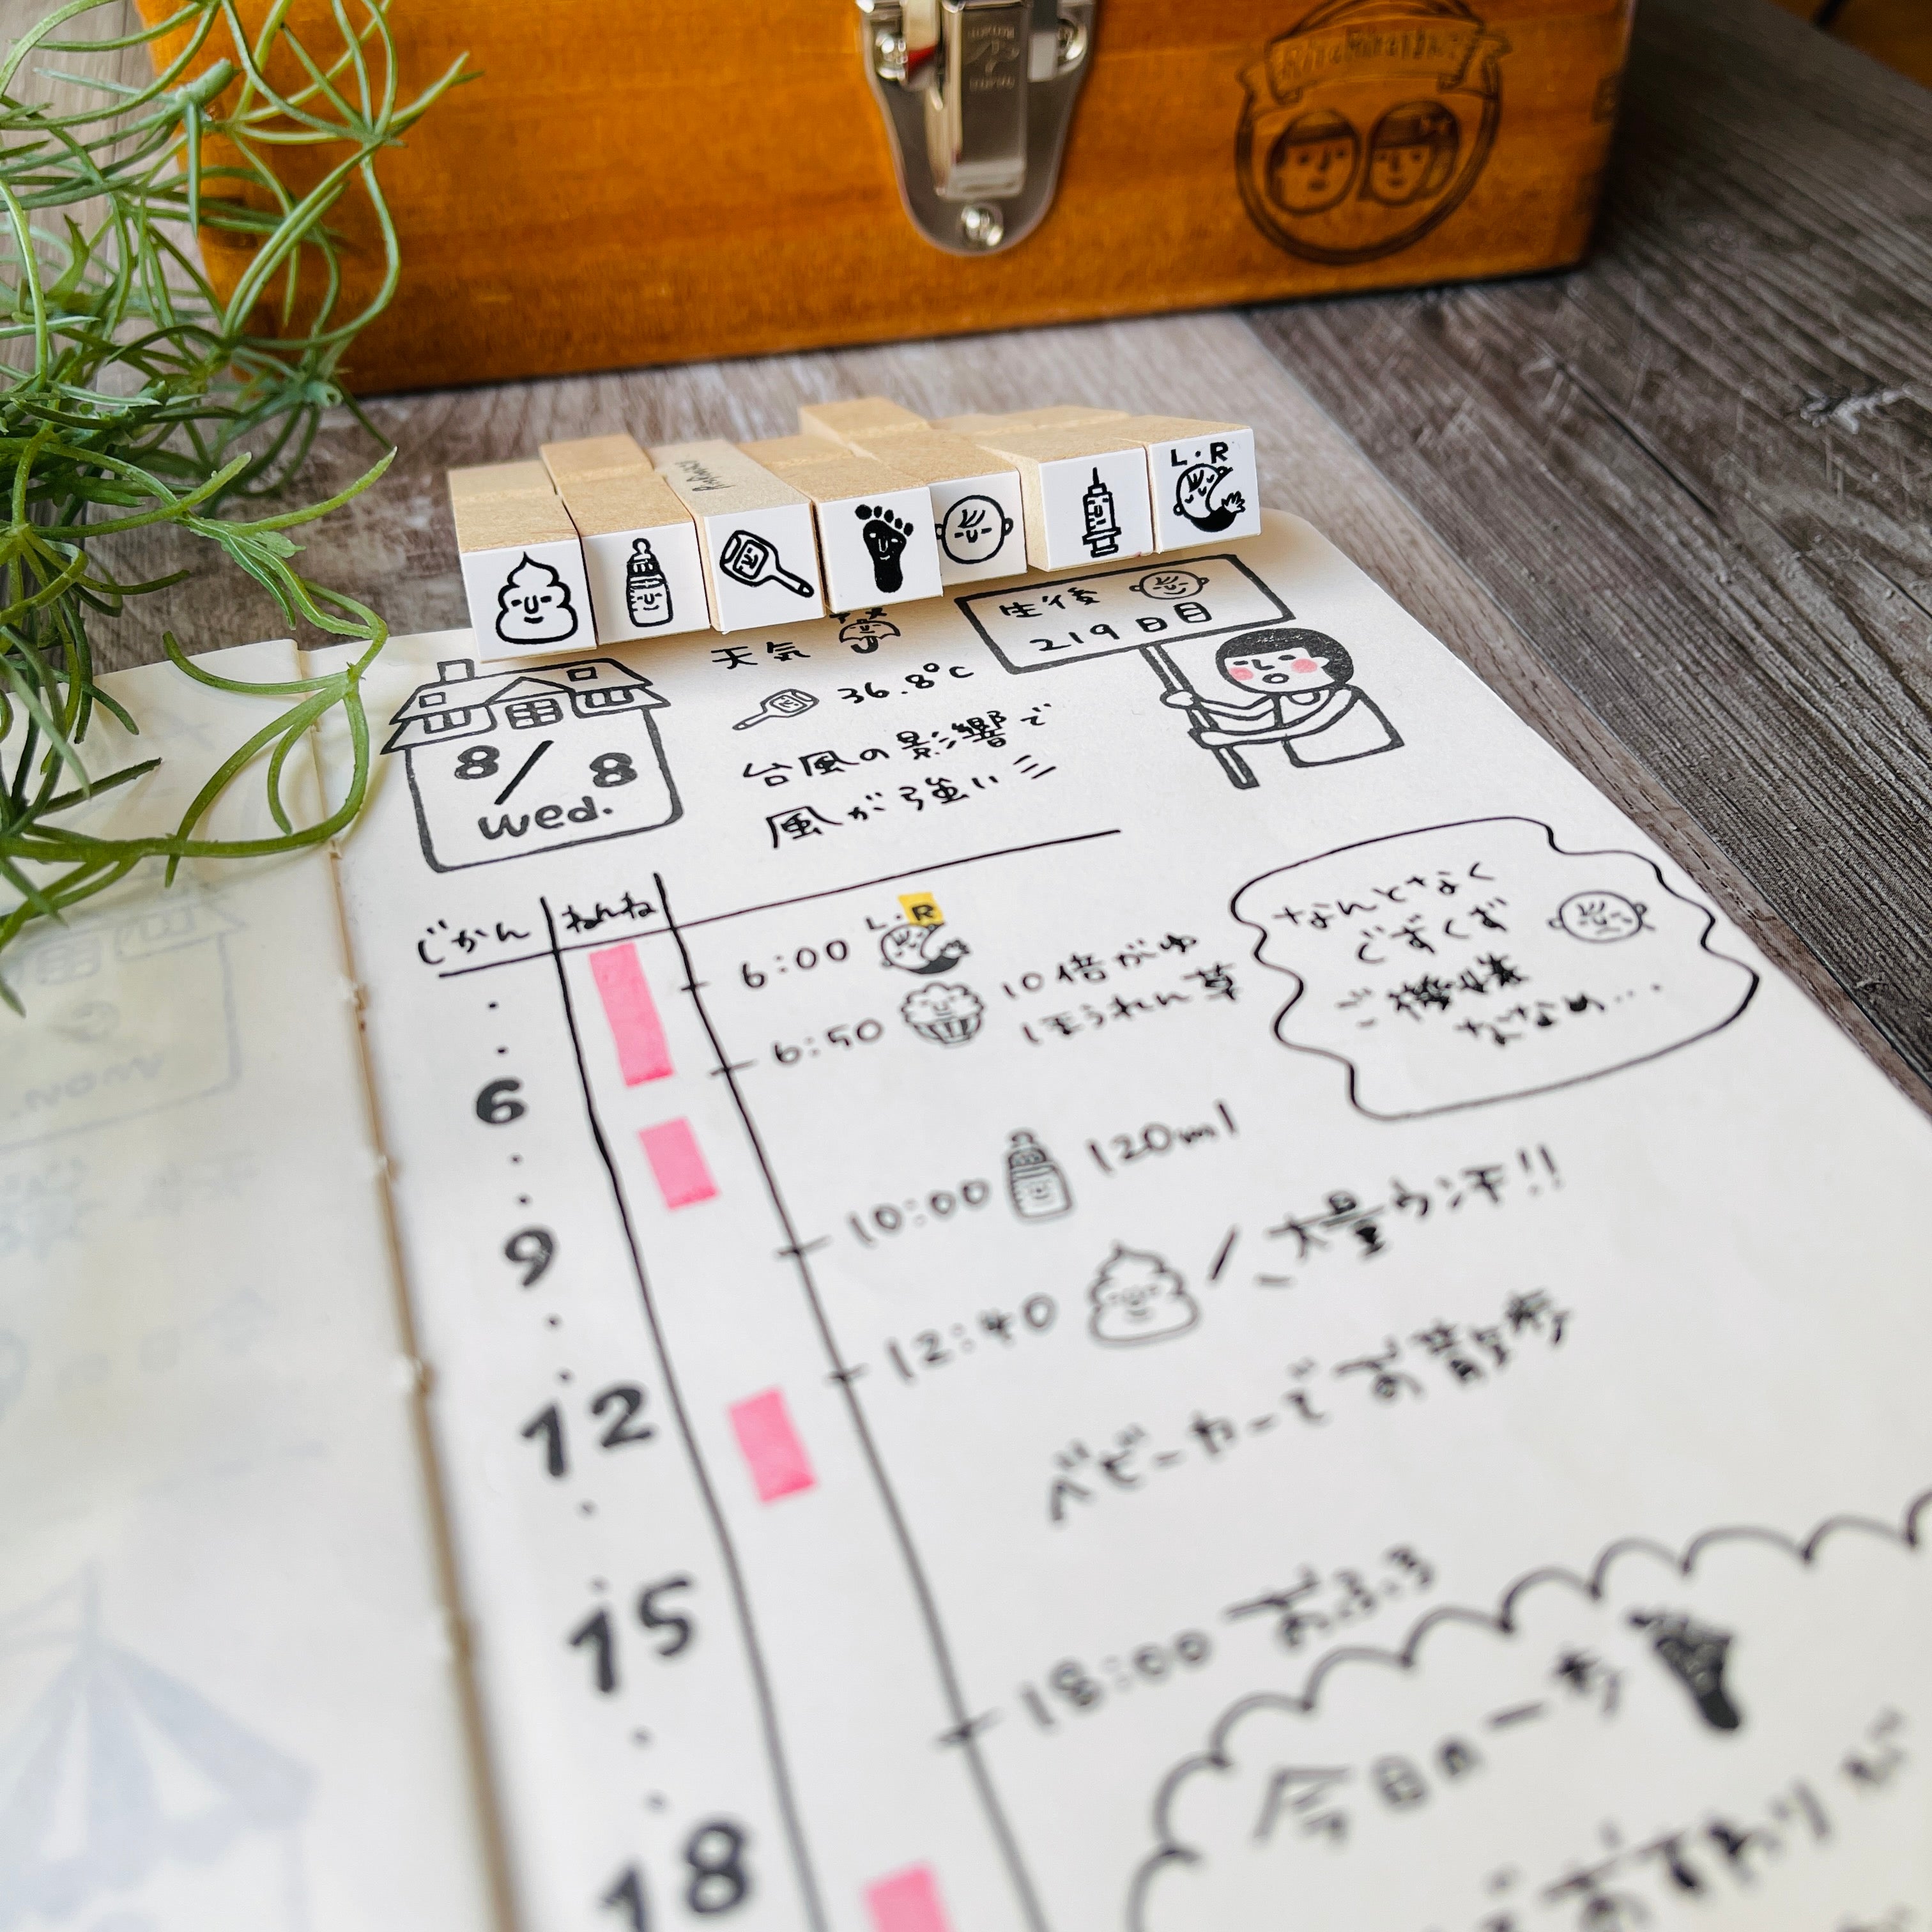 L・R
天気
生後
219日目
36.8℃
8/8
wed.
台風の影響で
風が強い
じかん
ねんね
6:00
L・R
6:50
10倍がゆ
ほうれん草
なんとなく
ぐずぐず
ご機嫌
ななめ…
6
10:00
120ml
9
12:40
大量ウンチ!!
12
ベビーカーでお散歩
15
18:00 おふろ
今日の一歩
18
おすわりが